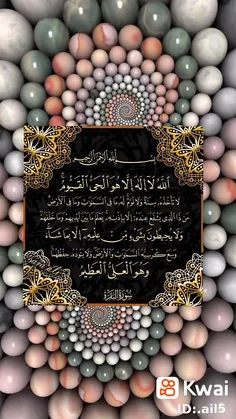 بسم الله الرحمن الرحيم
الله لا إله إلا هو الحي القيوم
لا تأخذه سنة ولا نوم له ما في السموات وما في الأرض
من ذا الذي يشفع عنده إلا بإذنه يعلم ما بين أيديهم وما خلفهم
ولا يحيطون بشيء من علمه إلا بما شاء
وسع كرسيه السموات والأرض ولا يئوده حفظهما
وهو العلي العظيم
سورة البقرة
Kwai
ID:.ail5